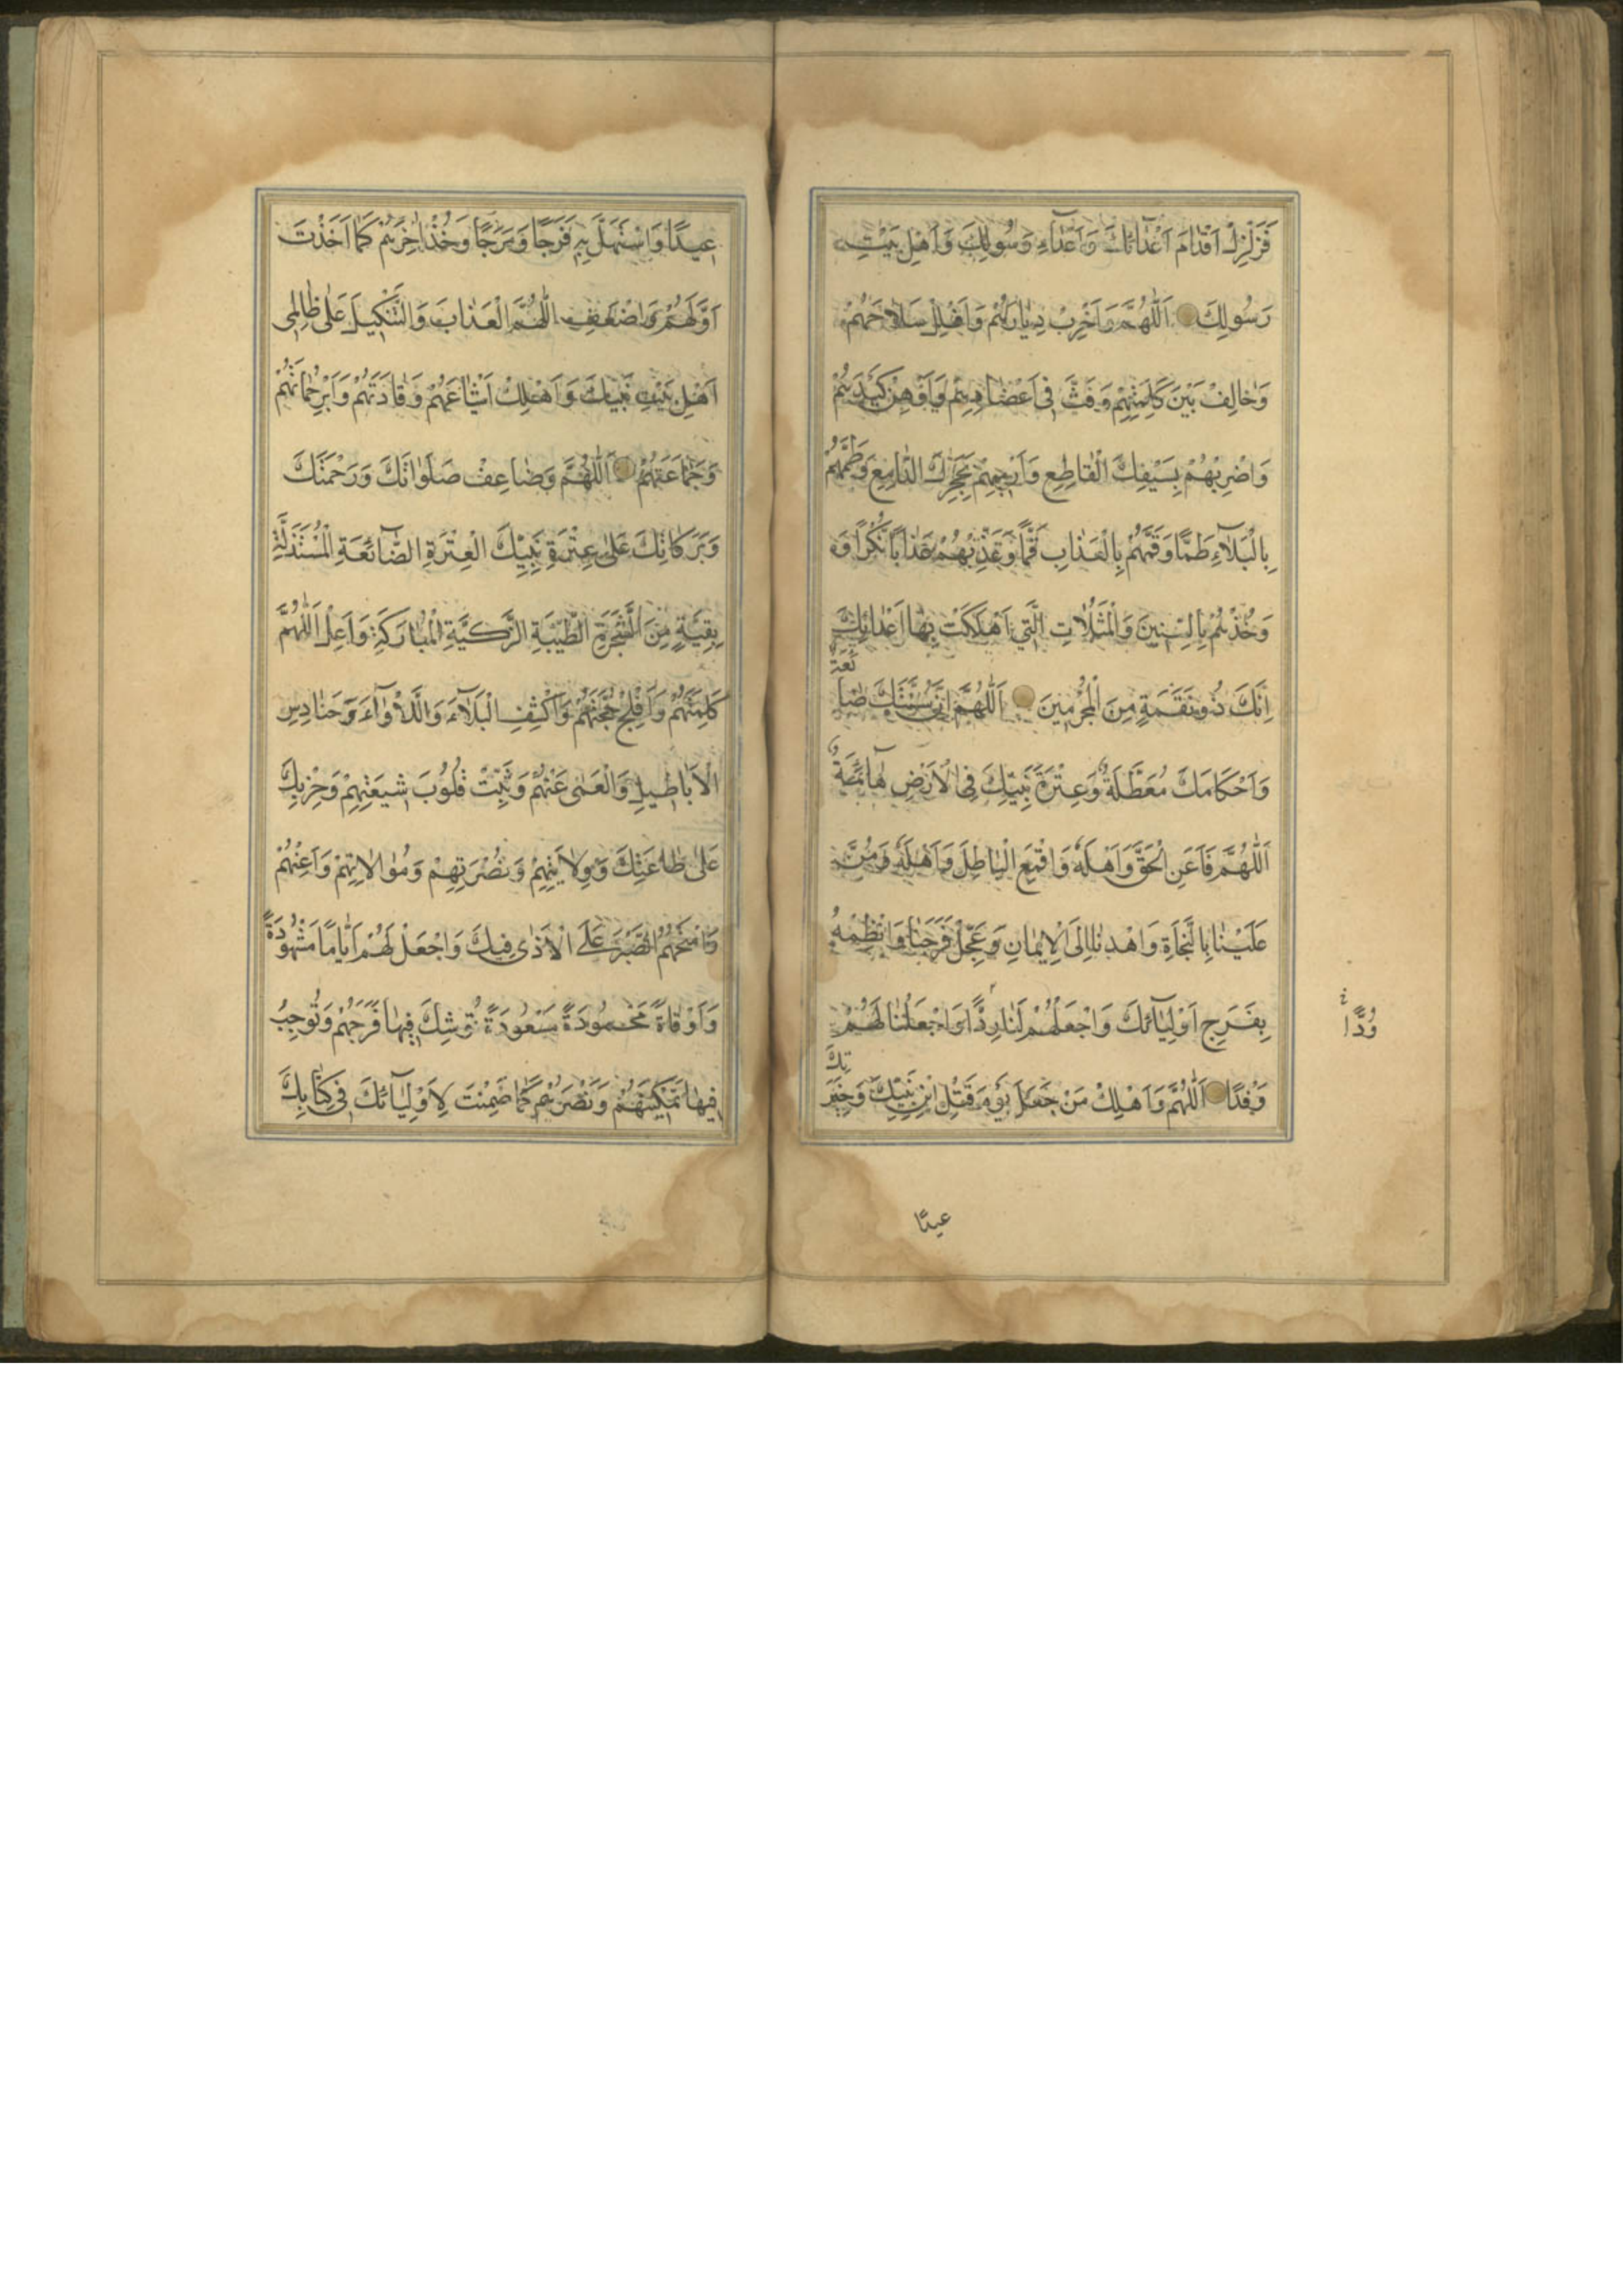 فَزَلْزِلْ اَقْدٰامَ اَعْدٰائِكَ وَ اَعْدٰآءِ رَسُولِكَ وَ اَهْلِ بَيْتِ
رَسُولِكَ اَللّٰهُمَّ وَ اَخْرِبْ دِيٰارَهُمْ وَ افْلِلْ سَلٰاحَهُمْ
وَ خٰالِفْ بَيْنَ كَلِمَتِهِمْ وَ فُتَّ فِى اَعْضٰادِهِمْ وَ اَوْهِنْ كَيْدَهُمْ
وَ اضْرِبْهُمْ بِسَيْفِكَ الْقٰاطِعِ وَ ارْمِهِمْ بِحَجَرِكَ الدّٰامِغِ وَ طُمَّهُمْ
بِالْبَلٰآءِ طَمًّا وَ قُمَّهُمْ بِالْعَذٰابِ قَمًّا وَ عَذِّبْهُمْ عَذٰابًا نُكْرًا وَ
وَ خُذْهُمْ بِالسِّنِينَ وَ الْمَثُلٰاتِ الَّتِي اَهْلَكْتَ بِهٰا اَعْدٰائَكَ
اِنَّكَ ذُو نِقْمَةٍ مِنَ الْمُجْرِمِينَ اَللّٰهُمَّ اِنَّ سُنَّتَكَ ضٰائِعَةٌ
وَ اَحْكَامَكَ مُعَطَّلَةٌ وَ عِتْرَةَ نَبِيِّكَ فِى الْاَرْضِ هٰآئِمَةٌ
اَللّٰهُمَّ فَاَعِنِ الْحَقَّ وَ اَهْلَهُ وَ اقْمَعِ الْبٰاطِلَ وَ اَهْلَهُ وَ مُنَّ
عَلَيْنٰا بِالنَّجٰاةِ وَ اهْدِنٰا اِلَى الْاِيمٰانِ وَ عَجِّلْ فَرَجَنٰا وَ انْظِمْهُ
بِفَرَجِ اَوْلِيٰآئِكَ وَ اجْعَلْهُمْ لَنٰا رِدْءًا وَ اجْعَلْنٰا لَهُمْ
وُدًّا
وَفْدًا اَللّٰهُمَّ وَ اَهْلِكْ مَنْ جَعَلَ يَوْمَ قَتْلِ ابْنِ نَبِيِّكَ وَ خِيَرَتِكَ
عيدًا
عِيدًا وَ اسْتَهَلَّ بِهِ فَرَحًا وَ مَرَحًا وَ خُذْ اٰخِرَهُمْ كَمٰا اَخَذْتَ
اَوَّلَهُمْ وَ اَضْعِفِ اللّٰهُمَّ الْعَذٰابَ وَ التَّنْكِيلَ عَلٰى ظٰالِمِى
اَهْلِ بَيْتِ نَبِيِّكَ وَ اَهْلِكْ اَشْيٰاعَهُمْ وَ قٰادَتَهُمْ وَ اَبِرْ حُمٰاتَهُمْ
وَ جَمٰاعَتَهُمْ اَللّٰهُمَّ وَ ضٰاعِفْ صَلَوٰاتِكَ وَ رَحْمَتَكَ
وَ بَرَكٰاتِكَ عَلٰى عِتْرَةِ نَبِيِّكَ الْعِتْرَةِ الضّٰآئِعَةِ الْمُسْتَذَلَّةِ
بَقِيَّةٍ مِنَ الشَّجَرَةِ الطَّيِّبَةِ الزَّكِيَّةِ الْمُبٰارَكَةِ وَ اَعْلِ اَللّٰهُمَّ
كَلِمَتَهُمْ وَ اَفْلِجْ حُجَّتَهُمْ وَ اكْشِفِ الْبَلٰآءَ وَ اللَّاْوٰآءَ وَ حَنٰادِسَ
الْاَبٰاطِيلِ وَ الْعَمٰى عَنْهُمْ وَ ثَبِّتْ قُلُوبَ شِيعَتِهِمْ وَ حِزْبِكَ
عَلٰى طٰاعَتِكَ وَ وِلٰايَتِهِمْ وَ نُصْرَتِهِمْ وَ مُوٰالٰاتِهِمْ وَ اَعِنْهُمْ
وَ امْنَحْهُمُ الصَّبْرَ عَلَى الْاَذٰى فِيكَ وَ اجْعَلْ لَهُمْ اَيّٰامًا مَشْهُودَةً
وَ اَوْقٰاةً مَحْمُودَةً مَسْعُودَةً تُوشِكَ فِيهٰا فَرَجَهُمْ وَ تُوجِبُ
فِيهٰا تَمْكِينَهُمْ وَ نَصْرَهُمْ كَمٰا ضَمِنْتَ لِاَوْلِيٰآئِكَ فِى كِتٰابِكَ